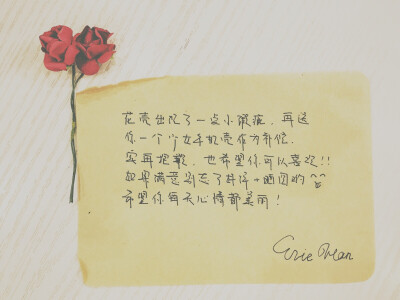 花壳出现了一点小瑕疵，再送
你一个少女手机壳作为补偿.
实再抱歉，也希望你可以喜欢!!
如果满意别忘了好评+晒图哟^^
希望你每天心情都美丽！